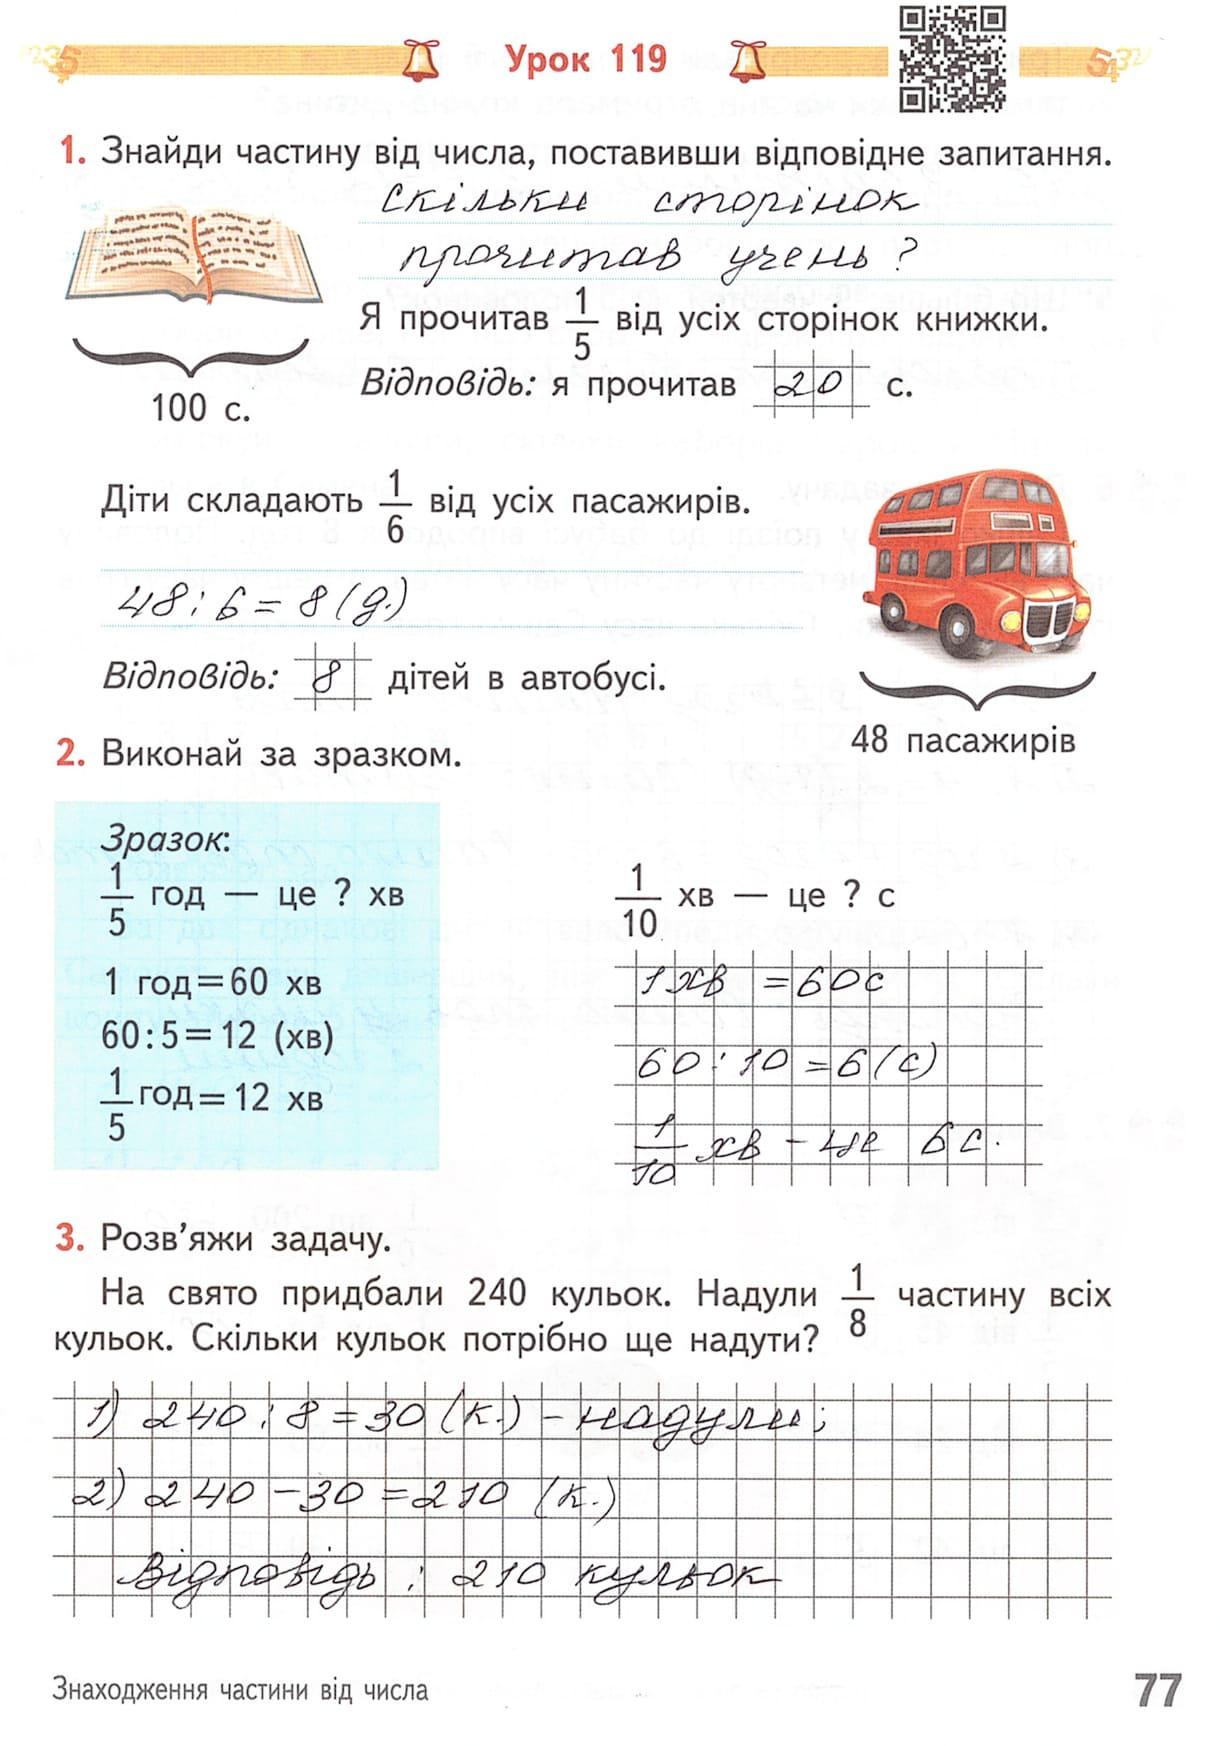 Урок 119
1. Знайди частину від числа, поставивши відповідне запитання.
Скільки сторінок
прочитав учень?
Я прочитав 1/5 від усіх сторінок книжки.
Відповідь: я прочитав 20 с.
100 с.
Діти складають 1/6 від усіх пасажирів.
48 : 6 = 8 (д.)
Відповідь: 8 дітей в автобусі.
48 пасажирів
2. Виконай за зразком.
Зразок:
1/5 год — це ? хв
1 год = 60 хв
60 : 5 = 12 (хв)
1/5 год = 12 хв
1/10 хв — це ? с
1 хв = 60 с
60 : 10 = 6 (с)
1/10 хв – це 6 с.
3. Розв'яжи задачу.
На свято придбали 240 кульок. Надули 1/8 частину всіх
кульок. Скільки кульок потрібно ще надути?
1) 240 : 8 = 30 (к.) – надули;
2) 240 – 30 = 210 (к.)
Відповідь : 210 кульок
Знаходження частини від числа
77